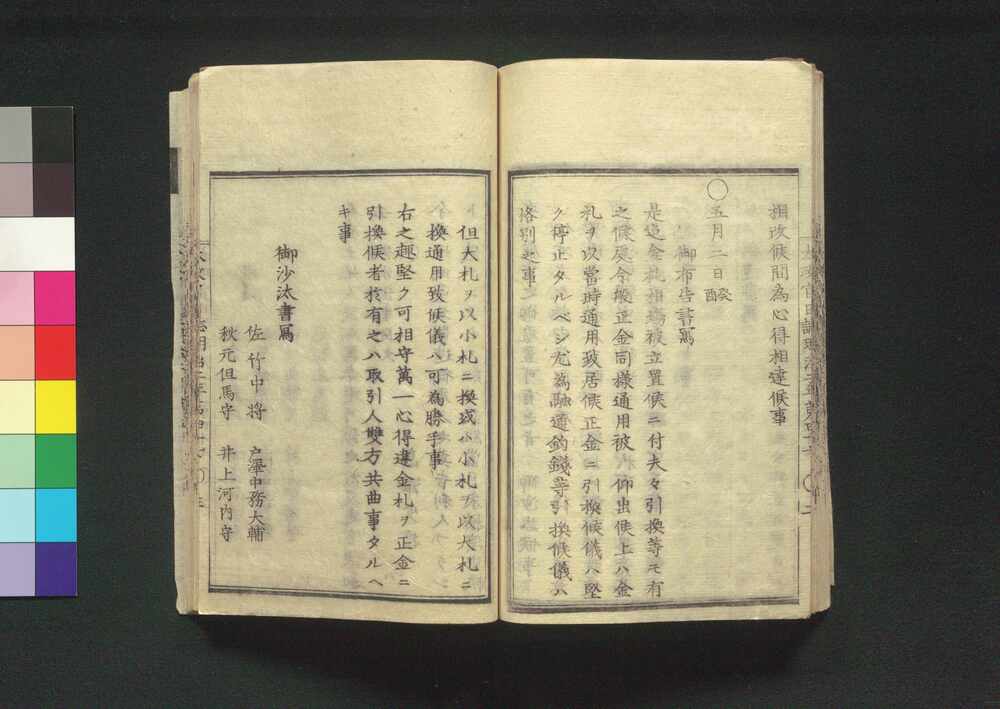 相改候間為心得相達候事
〇五月二日癸酉
御布告書寫
是迄金札相塲被立置候ニ付夫々引換等モ有
之候處今般正金同様通用被　仰出候上ハ金
札ヲ以當時通用致居候正金ニ引換候儀ハ堅
ク停止タルベシ尤為融通釣錢等引換候儀ハ
格別之事
但大札ヲ以小札ニ換或ハ小札ヲ以大札ニ
換通用致候儀ハ可為勝手事
右之趣堅ク可相守萬一心得違金札ヲ正金ニ
引換候者於有之ハ取引人雙方共曲事タルヘ
キ事
御沙汰書寫
佐竹中將　戸澤中務大輔
秋元但馬守　井上河内守